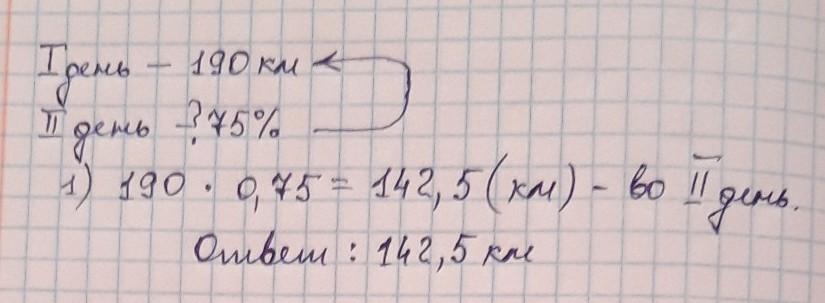 I день - 190 км
II день - ? 75%
1) 190 · 0,75 = 142,5 (км) - во II день.
Ответ : 142,5 км